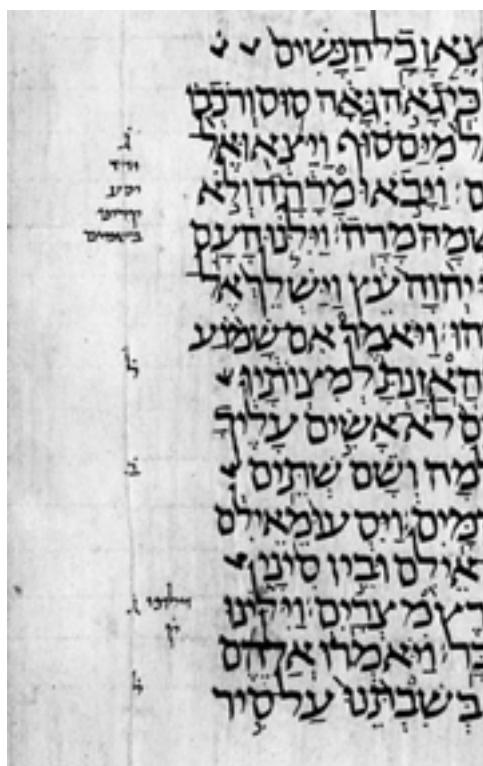 צֶאןָ כָל הַנָּשִׁים
כִּי גָאֹה גָּאָה סוּס וְרֹכְבוֹ
מִיַּם סוּף וַיֵּצְאוּ אֶל
וַיָּבֹאוּ מָרָתָה וְלֹא
שְׁמָהּ מָרָה׃ וַיִּלֹּנוּ הָעָם
יְהוָה עֵץ וַיַּשְׁלֵךְ אֶל
הוּ׃ וַיֹּאמֶר אִם שָׁמוֹעַ
הַאֲזַנְתָּ לְמִצְוֺתָיו
לֹא אָשִׂים עָלֶיךָ
מָה וְשָׁם שְׁתֵּים
הַמָּיִם׃ וַיִּסְעוּ מֵאֵילִם
אֵילִם וּבֵין סִינָי
רֶץ מִצְרָיִם׃ וַיִּלֹּינוּ
וַיֹּאמְרוּ אֲלֵהֶם
בְּשִׁבְתֵּנוּ עַל סִיר